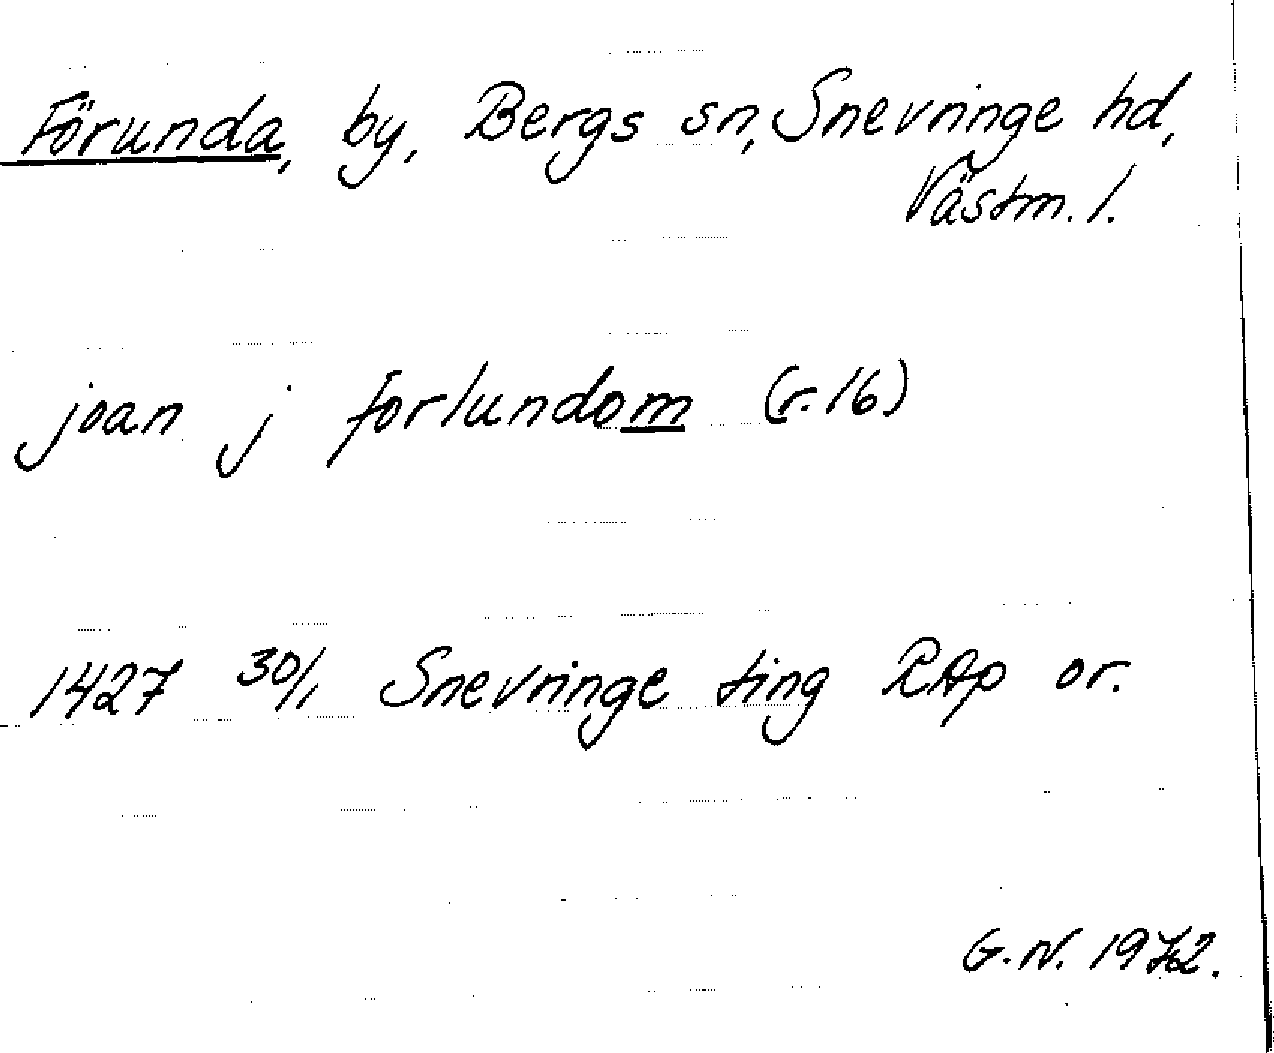 Förunda, by, Bergs sn, Snevringe hd,
Västm. l.
joan j forlundom (r. 16)
1427 30/1 Snevringe ting RAp or.
G. N. 1972.